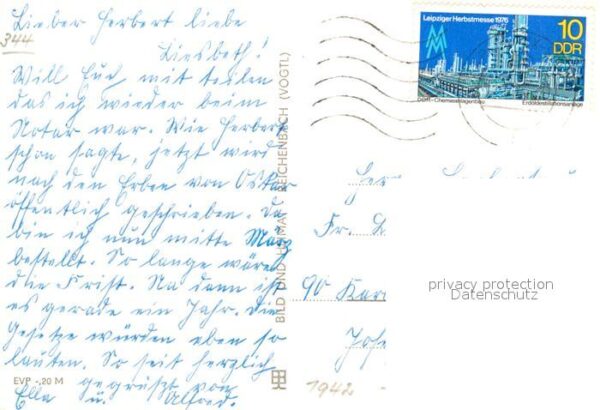 Lieber Herbert liebe
Liesbeth!
Will Euch mit teilen
das ich wieder beim
Notar war. Wie Herbert
schon sagte, jetzt wird
nach den Erben von Oskar
öffentlich geschrieben. Da
bin ich nun mitte März
bestellt. So lange wäre
die Frist. Na dann ist
es gerade ein Jahr. Die
Gesetze würden eben so
lauten. So seit herzlich
gegrüßt von
Ella u. Alfred.
344
EVP -,20 M
BILD UND HEIMAT REICHENBACH (VOGTL)
Leipziger Herbstmesse 1976
MM
10
DDR
DDR-Chemieanlagenbau
Erdöldestillationsanlage
Fr.
90 Kar
privacy protection
Datenschutz
1942